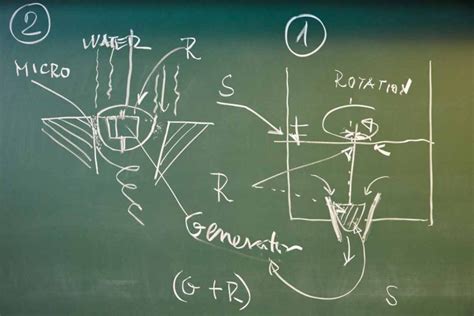 2
WATER
R
MICRO
1
ROTATION
S
R
Generator
(G+R)
S